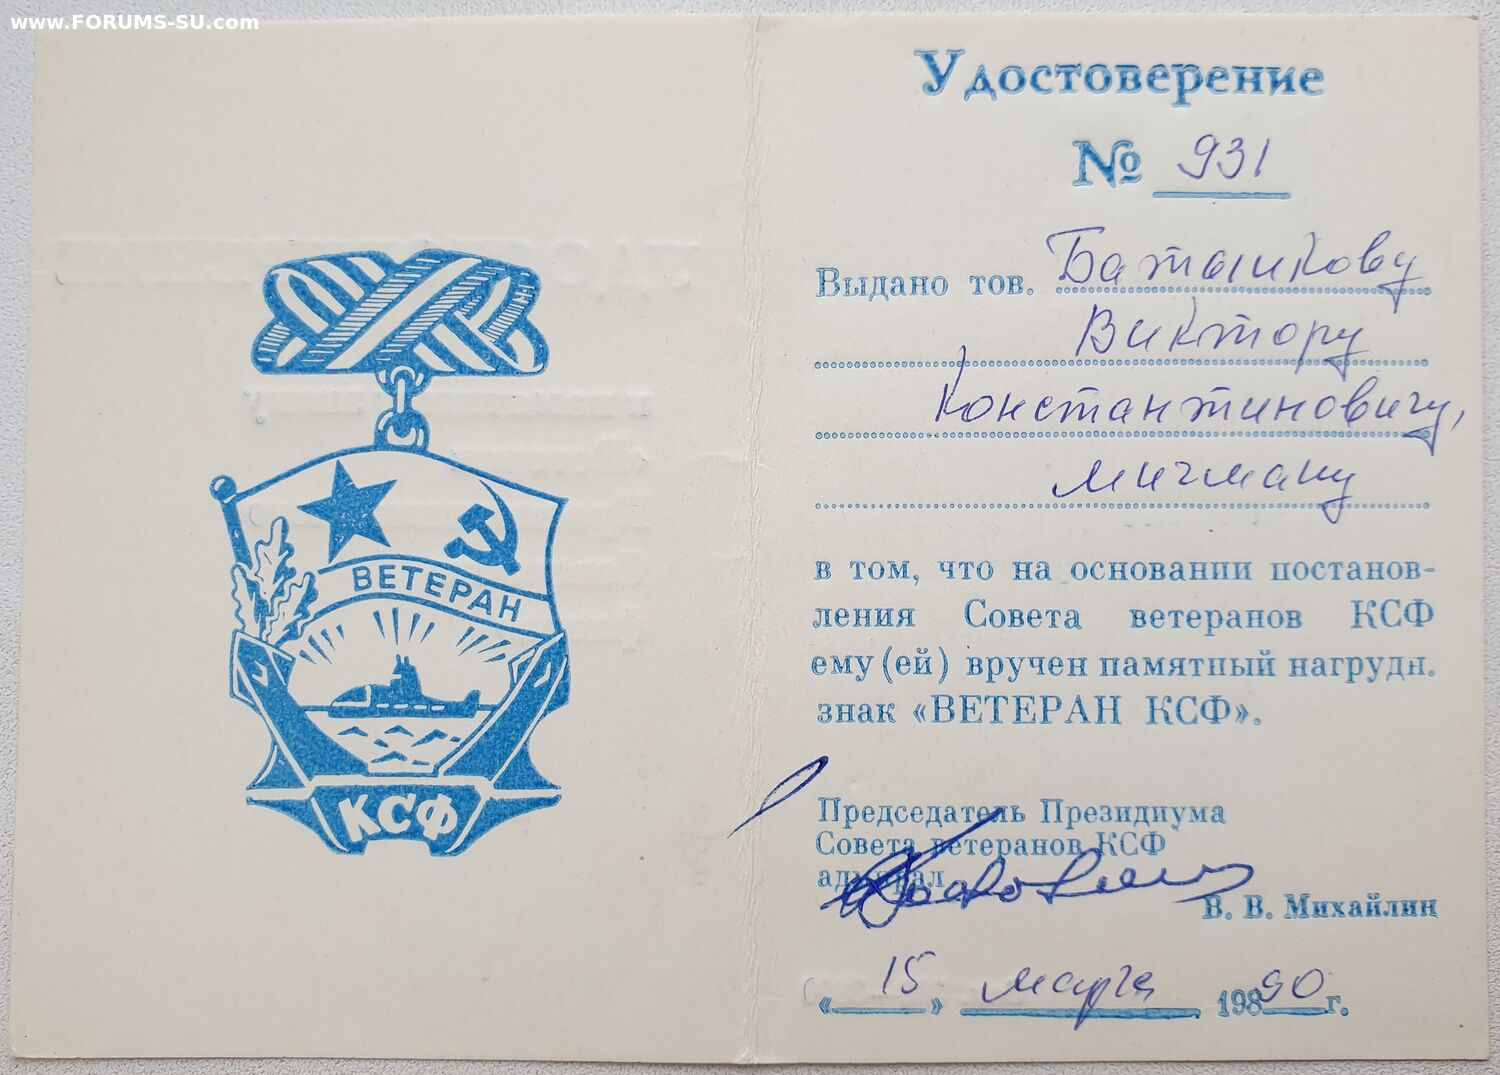 www.FORUMS-SU.com
ВЕТЕРАН
КСФ
Удостоверение
№ 931
Выдано тов. Батышкову
Виктору
Константиновичу,
мичману
в том, что на основании постанов-
ления Совета ветеранов КСФ
ему (ей) вручен памятный нагрудн.
знак «ВЕТЕРАН КСФ».
Председатель Президиума
Совета ветеранов КСФ
адмирал
В. В. Михайлин
«15» марта 1990 г.